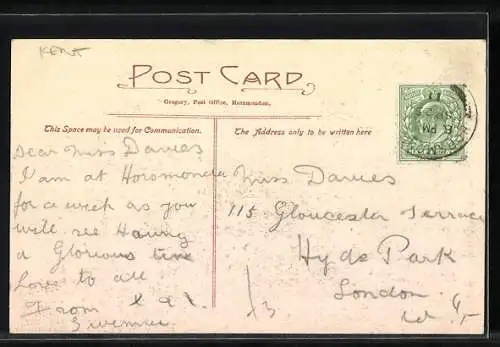 KENT
POST CARD
Gregory, Post Office, Horsmonden.
This Space may be used for Communication.
The Address only to be written here
Dear Miss Davies
I am at Horsmonden
for a week as you
will see Having
a Glorious time
Love to all
From
Miss Davies
115 Gloucester Terrace
Hyde Park
London